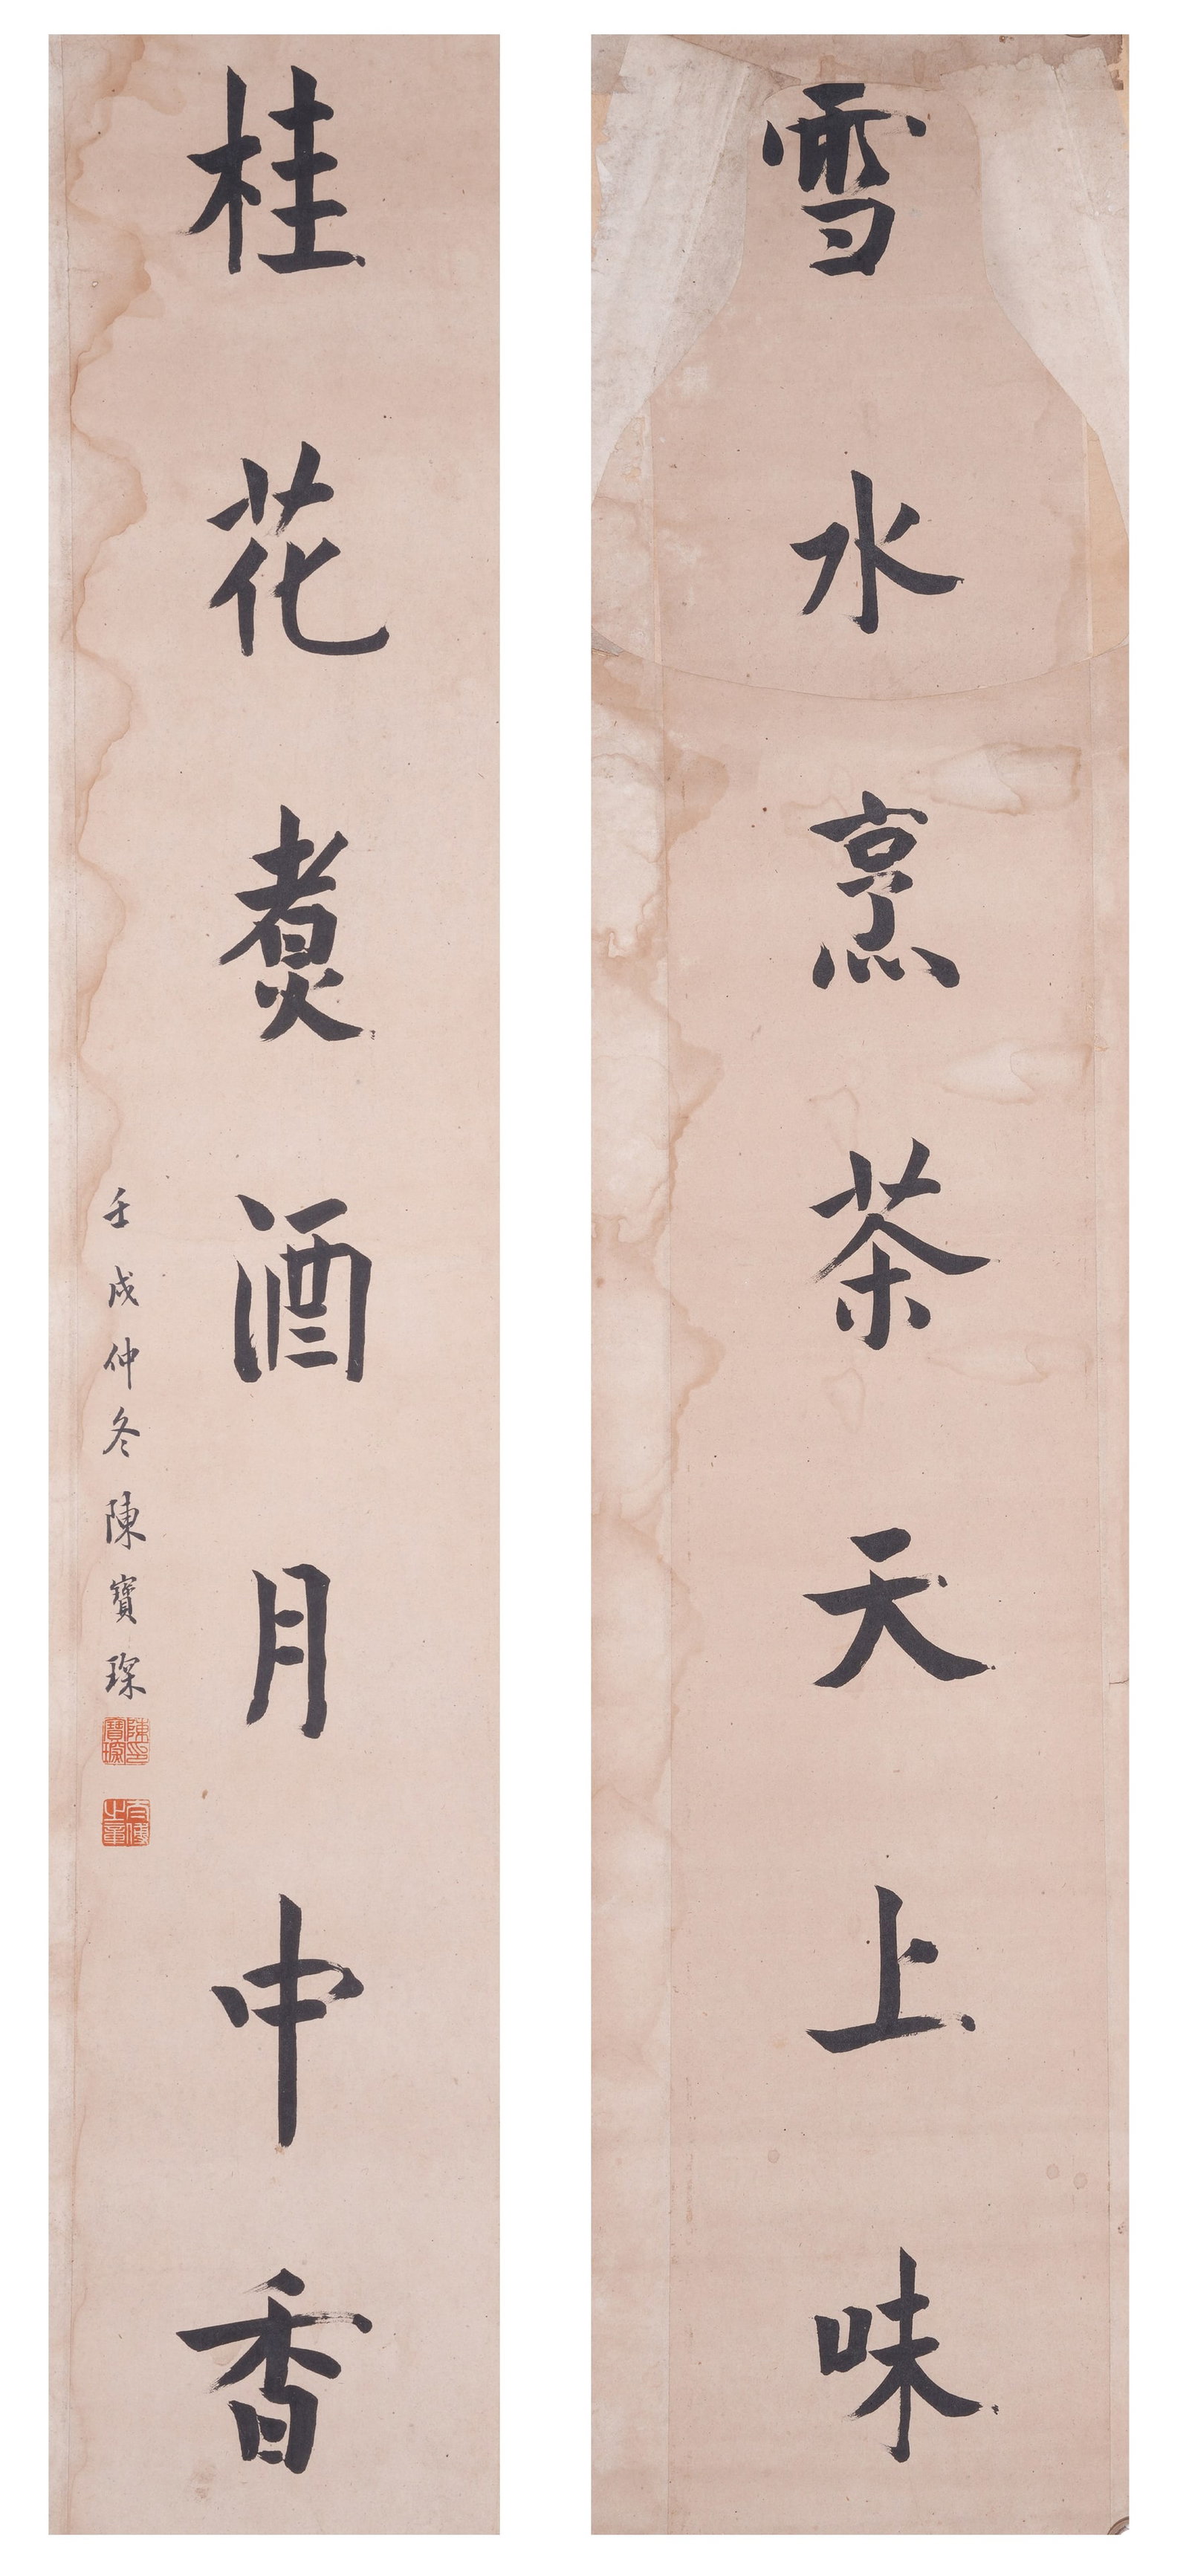 雪水烹茶天上味
桂花煑酒月中香
壬戌仲冬陳寶琛
陳寶琛印
太傅之章